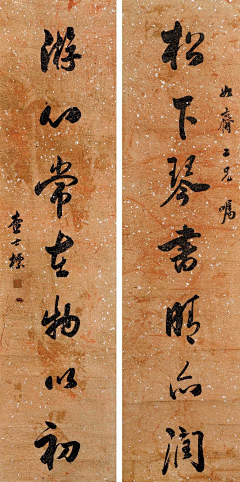 松下琴書晴亦潤
如齋二兄囑
游心常在物以初
查士標